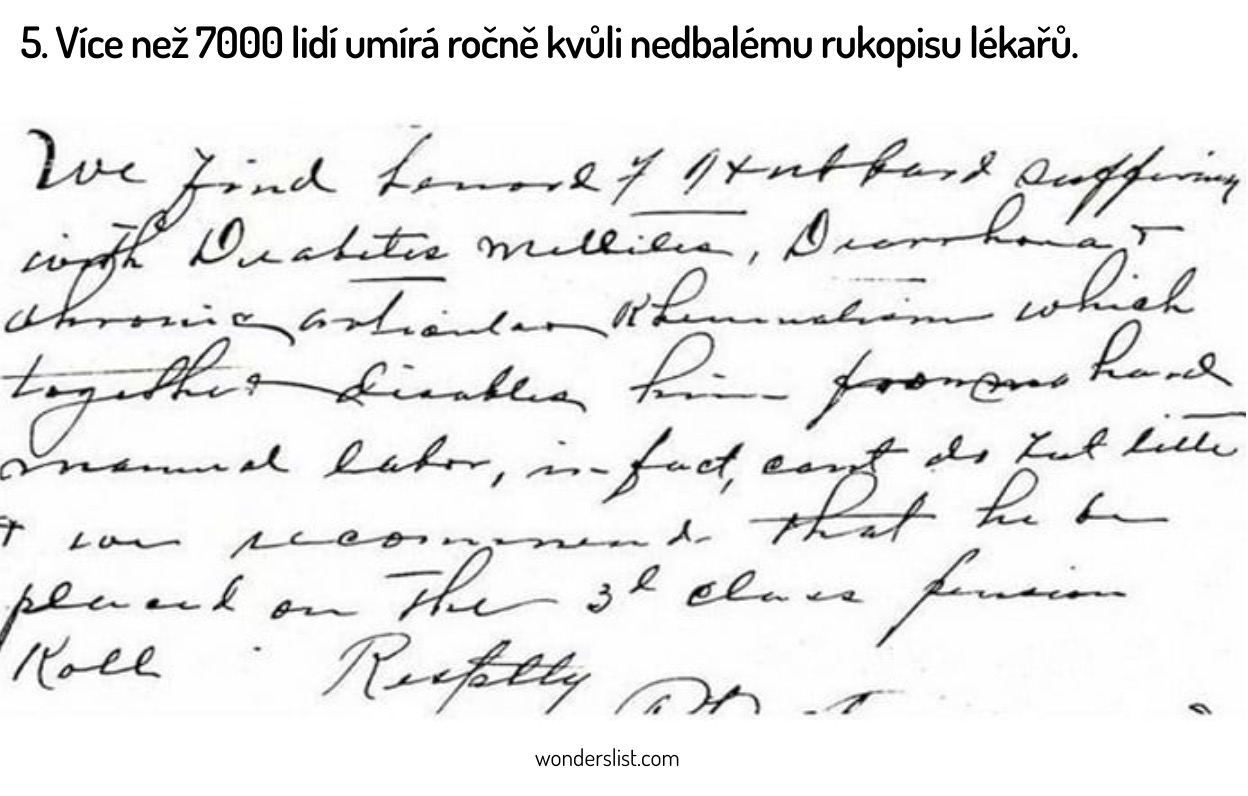 5. Více než 7000 lidí umírá ročně kvůli nedbalému rukopisu lékařů.
We find Leonard F Hubbard suffering
with Diabetes Mellites, Diarrhoea +
chronic articular Rheumatism which
together disables him from hard
manual labor, in fact, cant do but little
+ we recommend that he be
placed on the 3d class pension
Roll Respttly
wonderslist.com